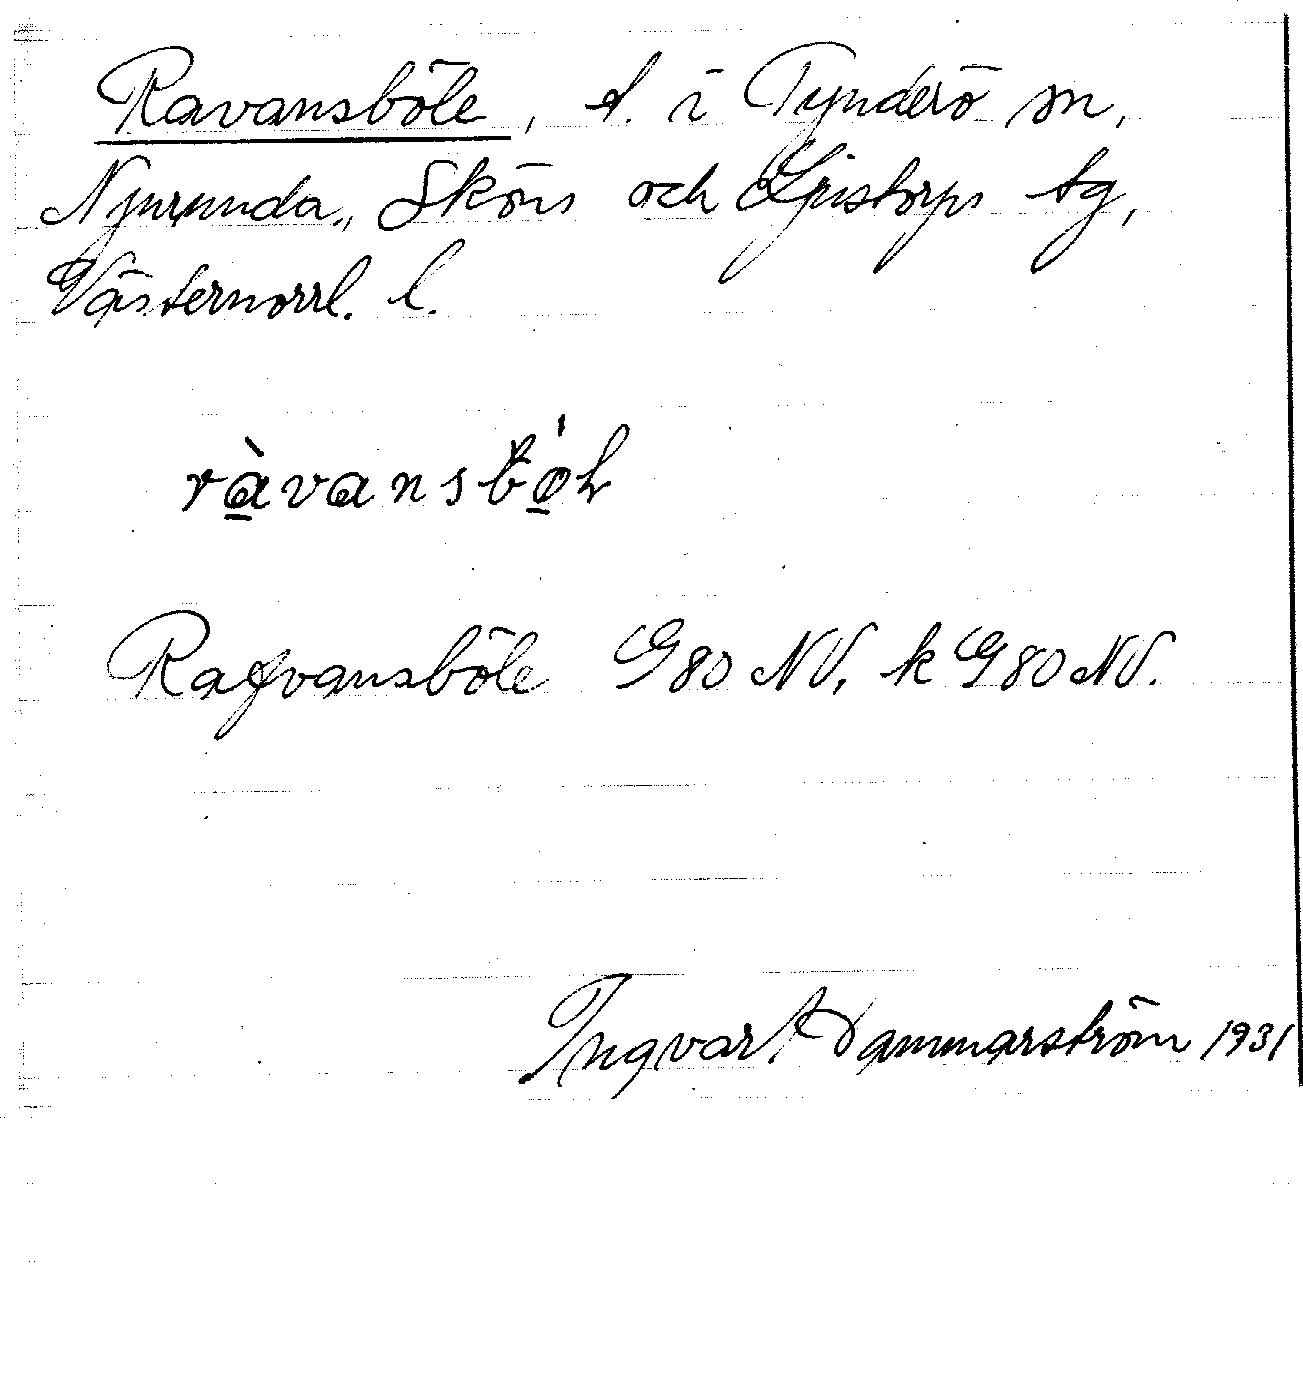 Ravansböle, t. i Tynderö sn,
Njurunda, Sköns och Ljustorps tg,
Västernorrl. l.
ràvansb
Rafvansböle G80 NV, k G80 NV.
Ingvar Hammarström 1931